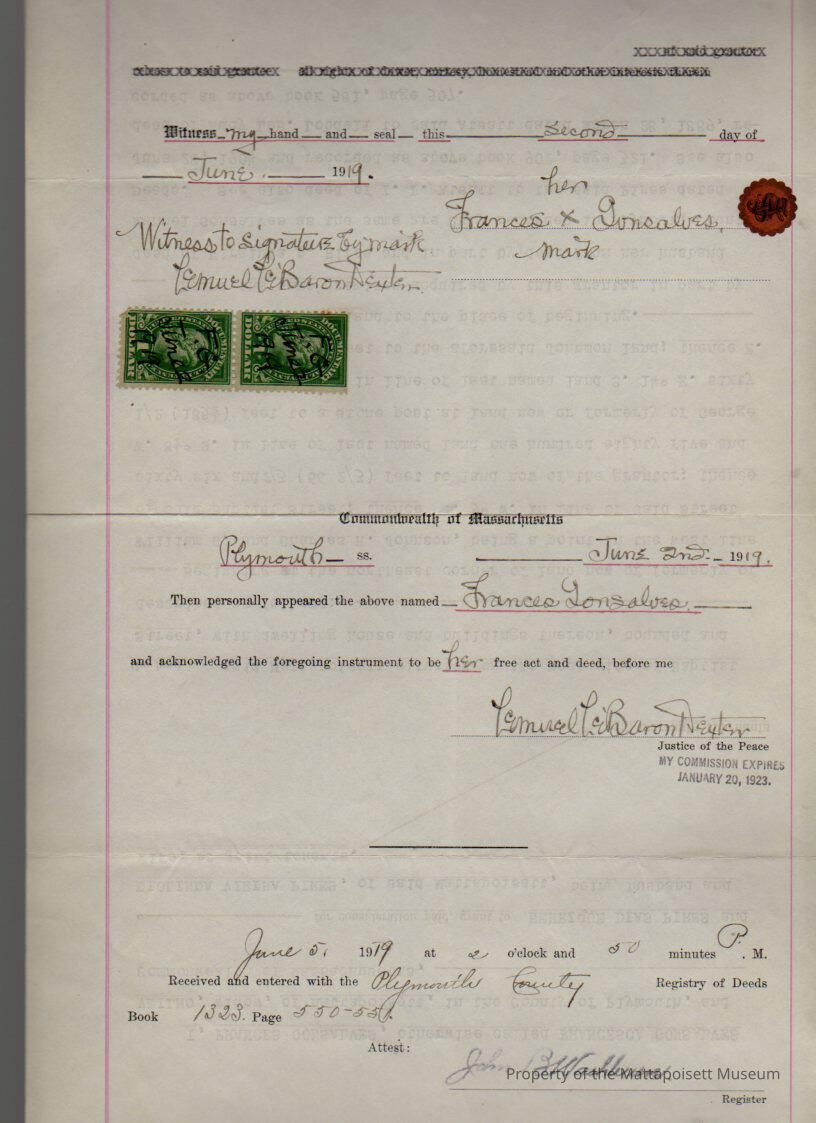 of said grantor
release to said grantee all rights of dower, curtesy, homestead and other interests therein
Witness my hand and seal this second day of
June 1919.
her
Frances x Gonsalves.
mark
Witness to signature by mark
Lemuel LeBaron Dexter.
DOCUMENTARY
DOLLAR
DOCUMENTARY
DOLLAR
Commonwealth of Massachusetts
Plymouth ss. June 2nd. 1919.
Then personally appeared the above named Frances Gonsalves.
and acknowledged the foregoing instrument to be her free act and deed, before me
Lemuel LeBaron Dexter
Justice of the Peace
MY COMMISSION EXPIRES
JANUARY 20, 1923.
June 5. 1919 at 2 o'clock and 50 minutes P. M.
Received and entered with the Plymouth County Registry of Deeds
Book 1323. Page 550-551.
Attest:
John B Washburn
Property of the Mattapoisett Museum
Register